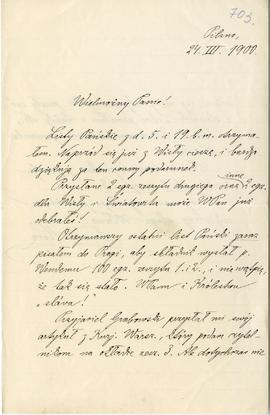 703.
Pilzno,
24. III. 1900
Wielmożny Panie!
Listy Pańskie z d. 5. i 19. b. m. otrzyma-
łem. Naprzód się już z Wisły cieszę, i bardzo
dziękuję za ten nowy podarunek.
inne
Przysłane 2 egz. zeszytu drugiego oraz 2 egz.
dla Wisły i Światowita może WPan już
odebrał!
Otrzymawszy ostatni list Pański zaraz
pisałem do Pragi, aby składnik wysłał p.
Wendemu 100 egz. zeszytu 1. i 2., i nie wątpię,
że tak się stało. WPanu i Królestwu
„sláva"!
Przyjaciel Grabowski przysłał mi swój
artykuł z Kurj. Warsz., który podam czytel-
nikom na okładce zesz. 3. Ale dotychczas nie